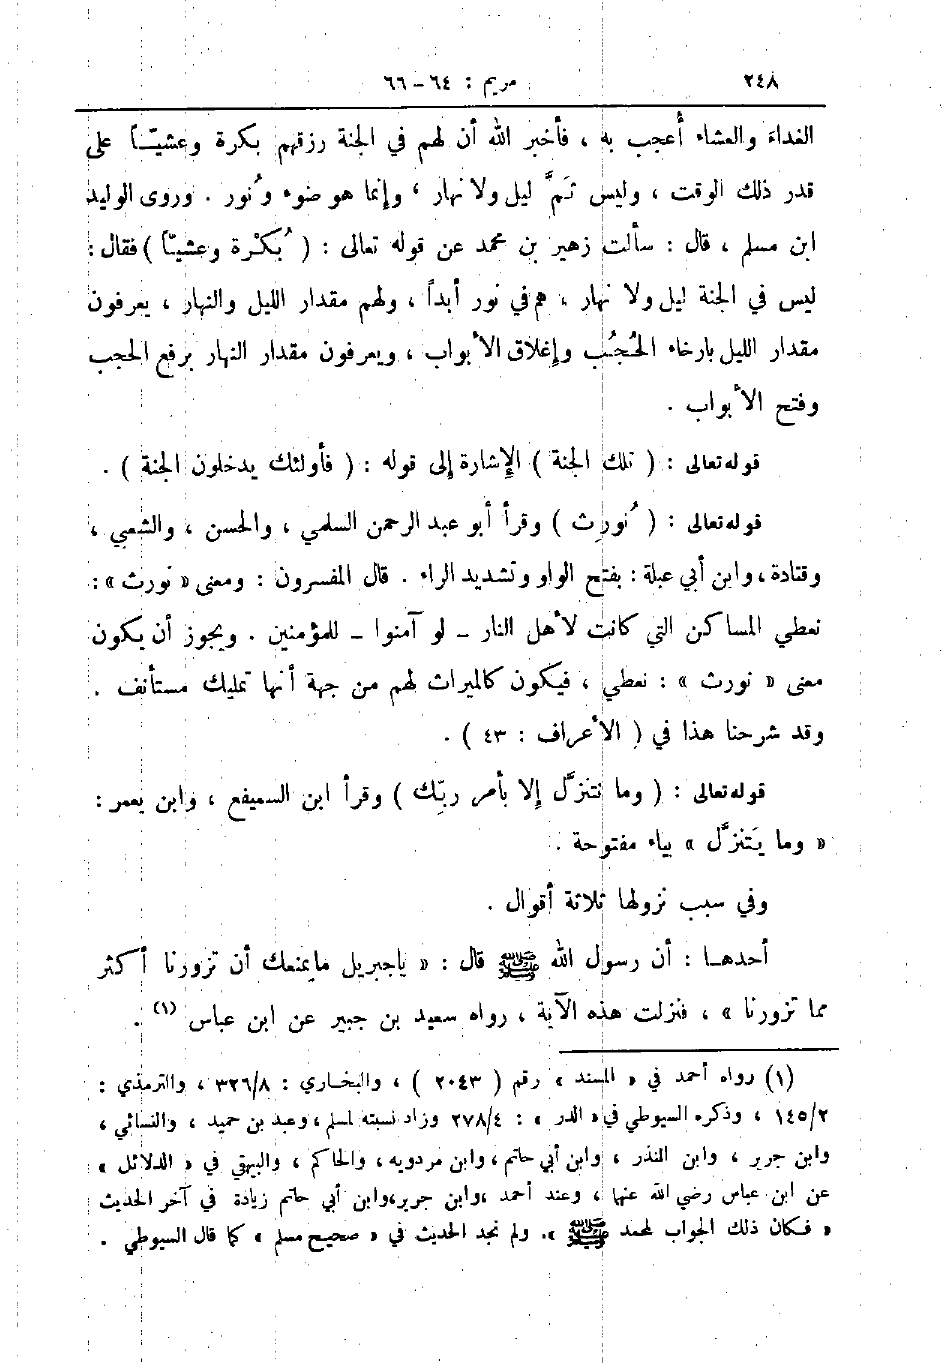 ٢٤٨ مريم : ٦٤ – ٦٦
الغداءَ والعشاء أُعجب به ، فأخبر الله أن لهم في الجنة رزقهم بكرة وعشيّـاً على
قدر ذلك الوقت ، وليس ثَمَّ ليل ولا نهار ، وإنما هو ضوء ونُور . وروى الوليد
ابن مسلم ، قال : سألت زهير بن محمد عن قوله تعالى : ( بُكْرة وعشيّاً ) فقال :
ليس في الجنة ليل ولا نهار ، هم في نور أبداً ، ولهم مقدار الليل والنهار ، يعرفون
مقدار الليل بارخاء الحُجُب وإغلاق الأبواب ، ويعرفون مقدار النهار برفع الحجب
وفتح الأبواب .
قوله تعالى : ( تلك الجنة ) الإشارة إلى قوله : ( فأولئك يدخلون الجنة ) .
قوله تعالى : ( نُورِث ) وقرأ أبو عبد الرحمن السلمي ، والحسن ، والشعبي ،
وقتادة ، وابن أبي عبلة : بفتح الواو وتشديد الراء . قال المفسرون : ومعنى « نورث » :
نعطي المساكن التي كانت لأهل النار – لو آمنوا – للمؤمنين . ويجوز أن يكون
معنى « نورث » : نعطي ، فيكون كالميراث لهم من جهة أنها تمليك مستأنف .
وقد شرحنا هذا في ( الأعراف : ٤٣ ) .
قوله تعالى : ( وما نتنزَّل إلا بأمر ربِّك ) وقرأ ابن السميفع ، وابن يعمر :
« وما يَتنزَّل » بياء مفتوحة .
وفي سبب نزولها ثلاثة أقوال .
أحدهـا : أن رسول الله ﷺ قال : « ياجبريل مايمنعك أن تزورنا أكثر
مما تزورنا » ، فنزلت هذه الآية ، رواه سعيد بن جبير عن ابن عباس (١) .
(١) رواه أحمد في « المسند » رقم ( ٢٠٤٣ ) ، والبخـاري : ٣٢٦/٨ ، والترمذي :
١٤٥/٢ ، وذكره السيوطي في « الدر » : ٢٧٨/٤ وزاد نسبته لمسلم ، وعبد بن حميد ، والنسائي ،
وابن جرير ، وابن المنذر ، وابن أبي حاتم ، وابن مردويه ، والحاكم ، والبيهقي في « الدلائل »
عن ابن عباس رضي الله عنهما ، وعند أحمد ، وابن جرير، وابن أبي حاتم زيادة في آخر الحديث
« فكان ذلك الجواب لمحمد ﷺ ». ولم نجد الحديث في « صحيح مسلم » كما قال السيوطي .